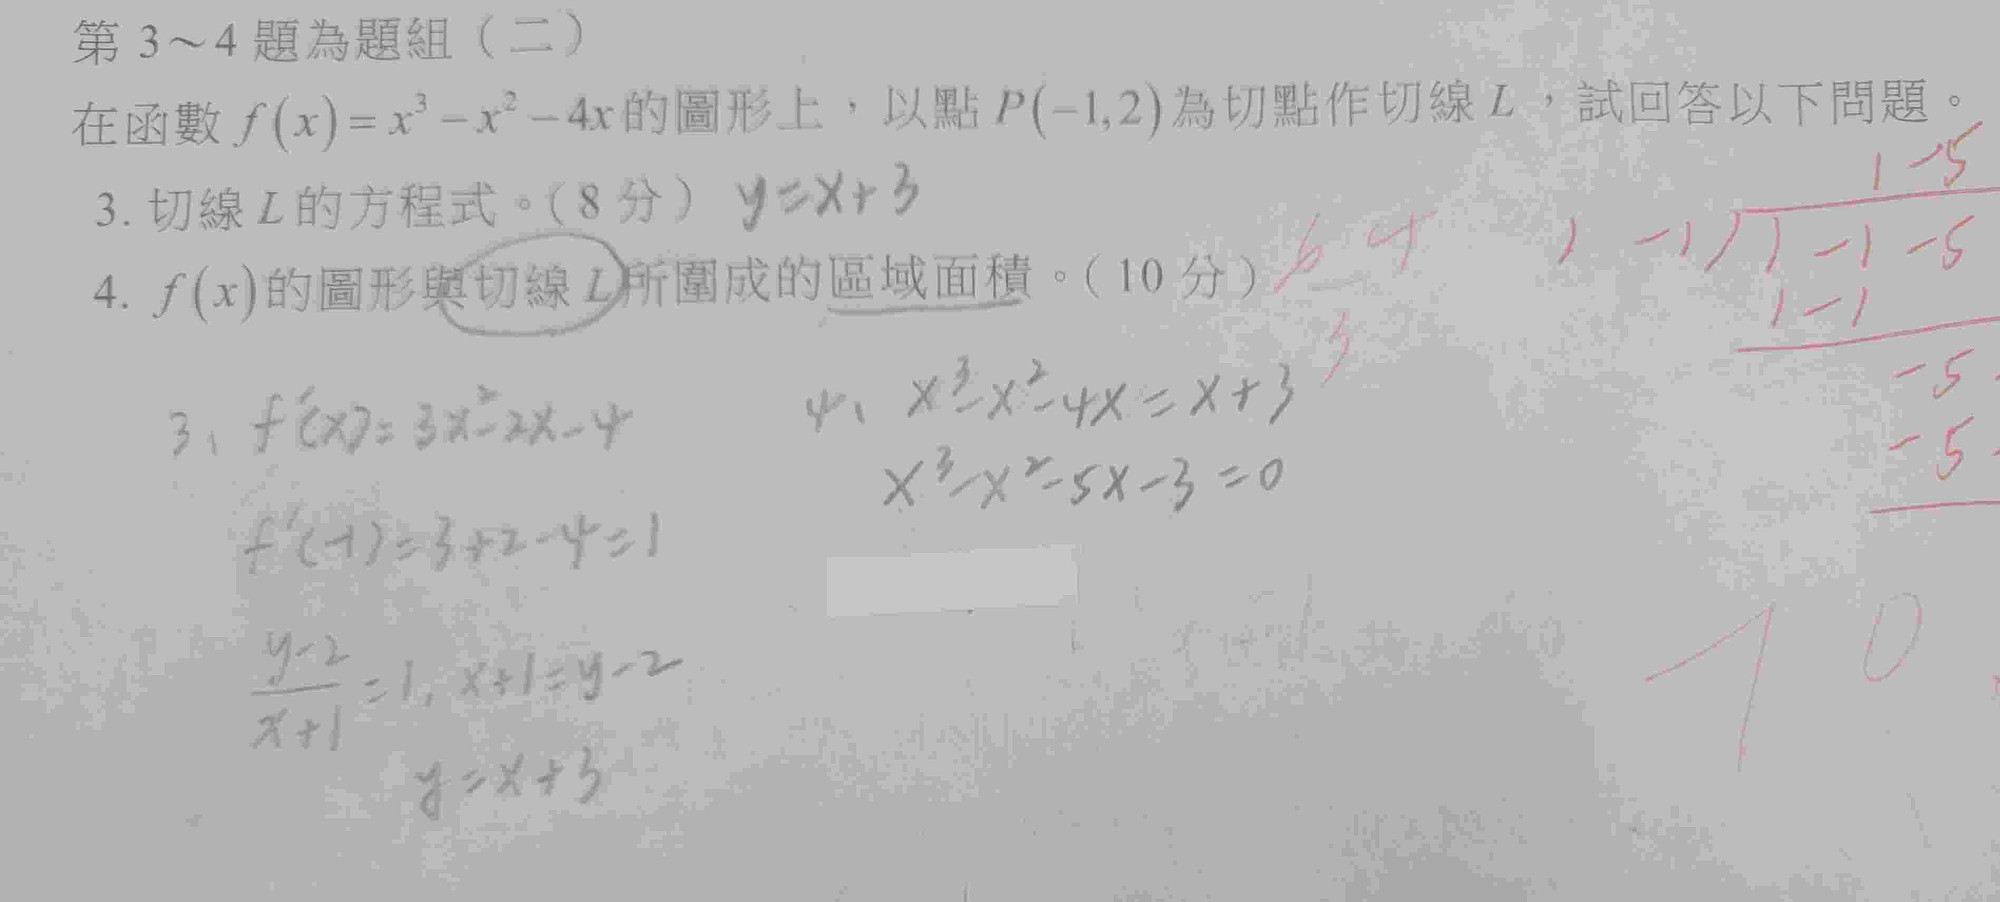 第 3～4 題為題組（二）
在函數 f(x)=x³－x²－4x的圖形上，以點 P(－1,2)為切點作切線 L，試回答以下問題。
3. 切線 L 的方程式。（8 分） y=x+3
4. f(x)的圖形與切線 L 所圍成的區域面積。（10 分） 64/3
3、f'(x)=3x²-2x-4
f'(-1)=3+2-4=1
(y-2)/(x+1)=1, x+1=y-2
y=x+3
4、x³-x²-4x=x+3
x³-x²-5x-3=0
1 -5
1 -1) 1 -1 -5
1 -1
-5
-5